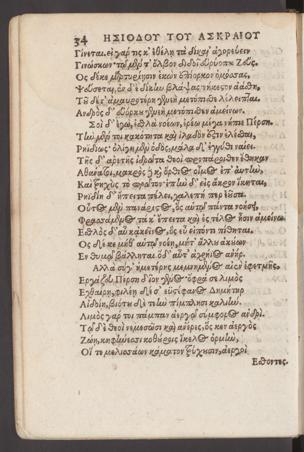 34 ΗΣΙΟΔΟΥ ΤΟΥ ΑΣΚΡΑΙΟΥ
Γίνεται. εἰ γάρ τις κ' ἐθέλῃ τὰ δίκαι' ἀγορεύειν
Γινώσκων· τῷ μέν τ' ὄλβον διδοῖ εὐρύοπα Ζεύς.
Ὃς δέ κε μαρτυρίῃσιν ἑκὼν ἐπίορκον ὀμόσσας,
Ψεύσεται, ἐν δὲ δίκην βλάψας νήκεστον ἀάσθη,
Τοῦ δέ τ' ἀμαυροτέρη γενεὴ μετόπισθε λέλειπται.
Ἀνδρὸς δ' εὐόρκου γενεὴ μετόπισθεν ἀμείνων.
Σοὶ δ' ἐγὼ, ἐσθλὰ νοέων, ἐρέω μέγα νήπιε Πέρση.
Τὴν μέν τοι κακότητα καὶ ἰλαδὸν ἔστιν ἑλέσθαι,
Ῥηϊδίως· ὀλίγη μὲν ὁδὸς, μάλα δ' ἐγγύθι ναίει.
Τῆς δ' ἀρετῆς ἱδρῶτα θεοὶ προπάροιθεν ἔθηκαν
Ἀθάνατοι, μακρὸς ἢ ὄρθιος οἶμος ἐπ' αὐτὴν,
Καὶ τρηχὺς τὸ πρῶτον· ἐπὴν δ' εἰς ἄκρον ἵκηται,
Ῥηϊδίη δ' ἤπειτα πέλει, χαλεπή περ ἐοῦσα.
Οὗτος μὲν πανάριστος, ὃς αὐτῷ πάντα νοήσῃ,
Φρασσάμενος τά κ' ἔπειτα καὶ ἐς τέλος ᾖσιν ἀμείνω.
Ἐσθλὸς δ' αὖ κἀκεῖνος, ὃς εὖ εἰπόντι πίθηται.
Ὃς δέ κε μήθ' αὑτῷ νοέῃ, μήτ' ἄλλου ἀκούων
Ἐν θυμῷ βάλληται· ὅδ' αὖτ' ἀχρήϊος ἀνήρ.
Ἀλλὰ σύ γ' ἡμετέρης μεμνημένος αἰὲν ἐφετμῆς,
Ἐργάζευ Πέρση δῖον γένος· ὄφρα σε λιμὸς
Ἐχθαίρῃ, φιλέῃ δέ σ' εὐστέφανος Δημήτηρ
Αἰδοίη, βιότου δὲ τεὴν πίμπλησι καλιήν.
Λιμὸς γάρ τοι πάμπαν ἀεργῷ σύμφορος ἀνδρί.
Τῷ δὲ θεοὶ νεμεσῶσι καὶ ἀνέρες, ὅς κεν ἀεργὸς
Ζώῃ, κηφήνεσσι κοθούροις ἴκελος ὀρμὴν,
Οἵ τε μελισσάων κάματον τρύχουσιν, ἀεργοὶ
Ἔσθοντες.